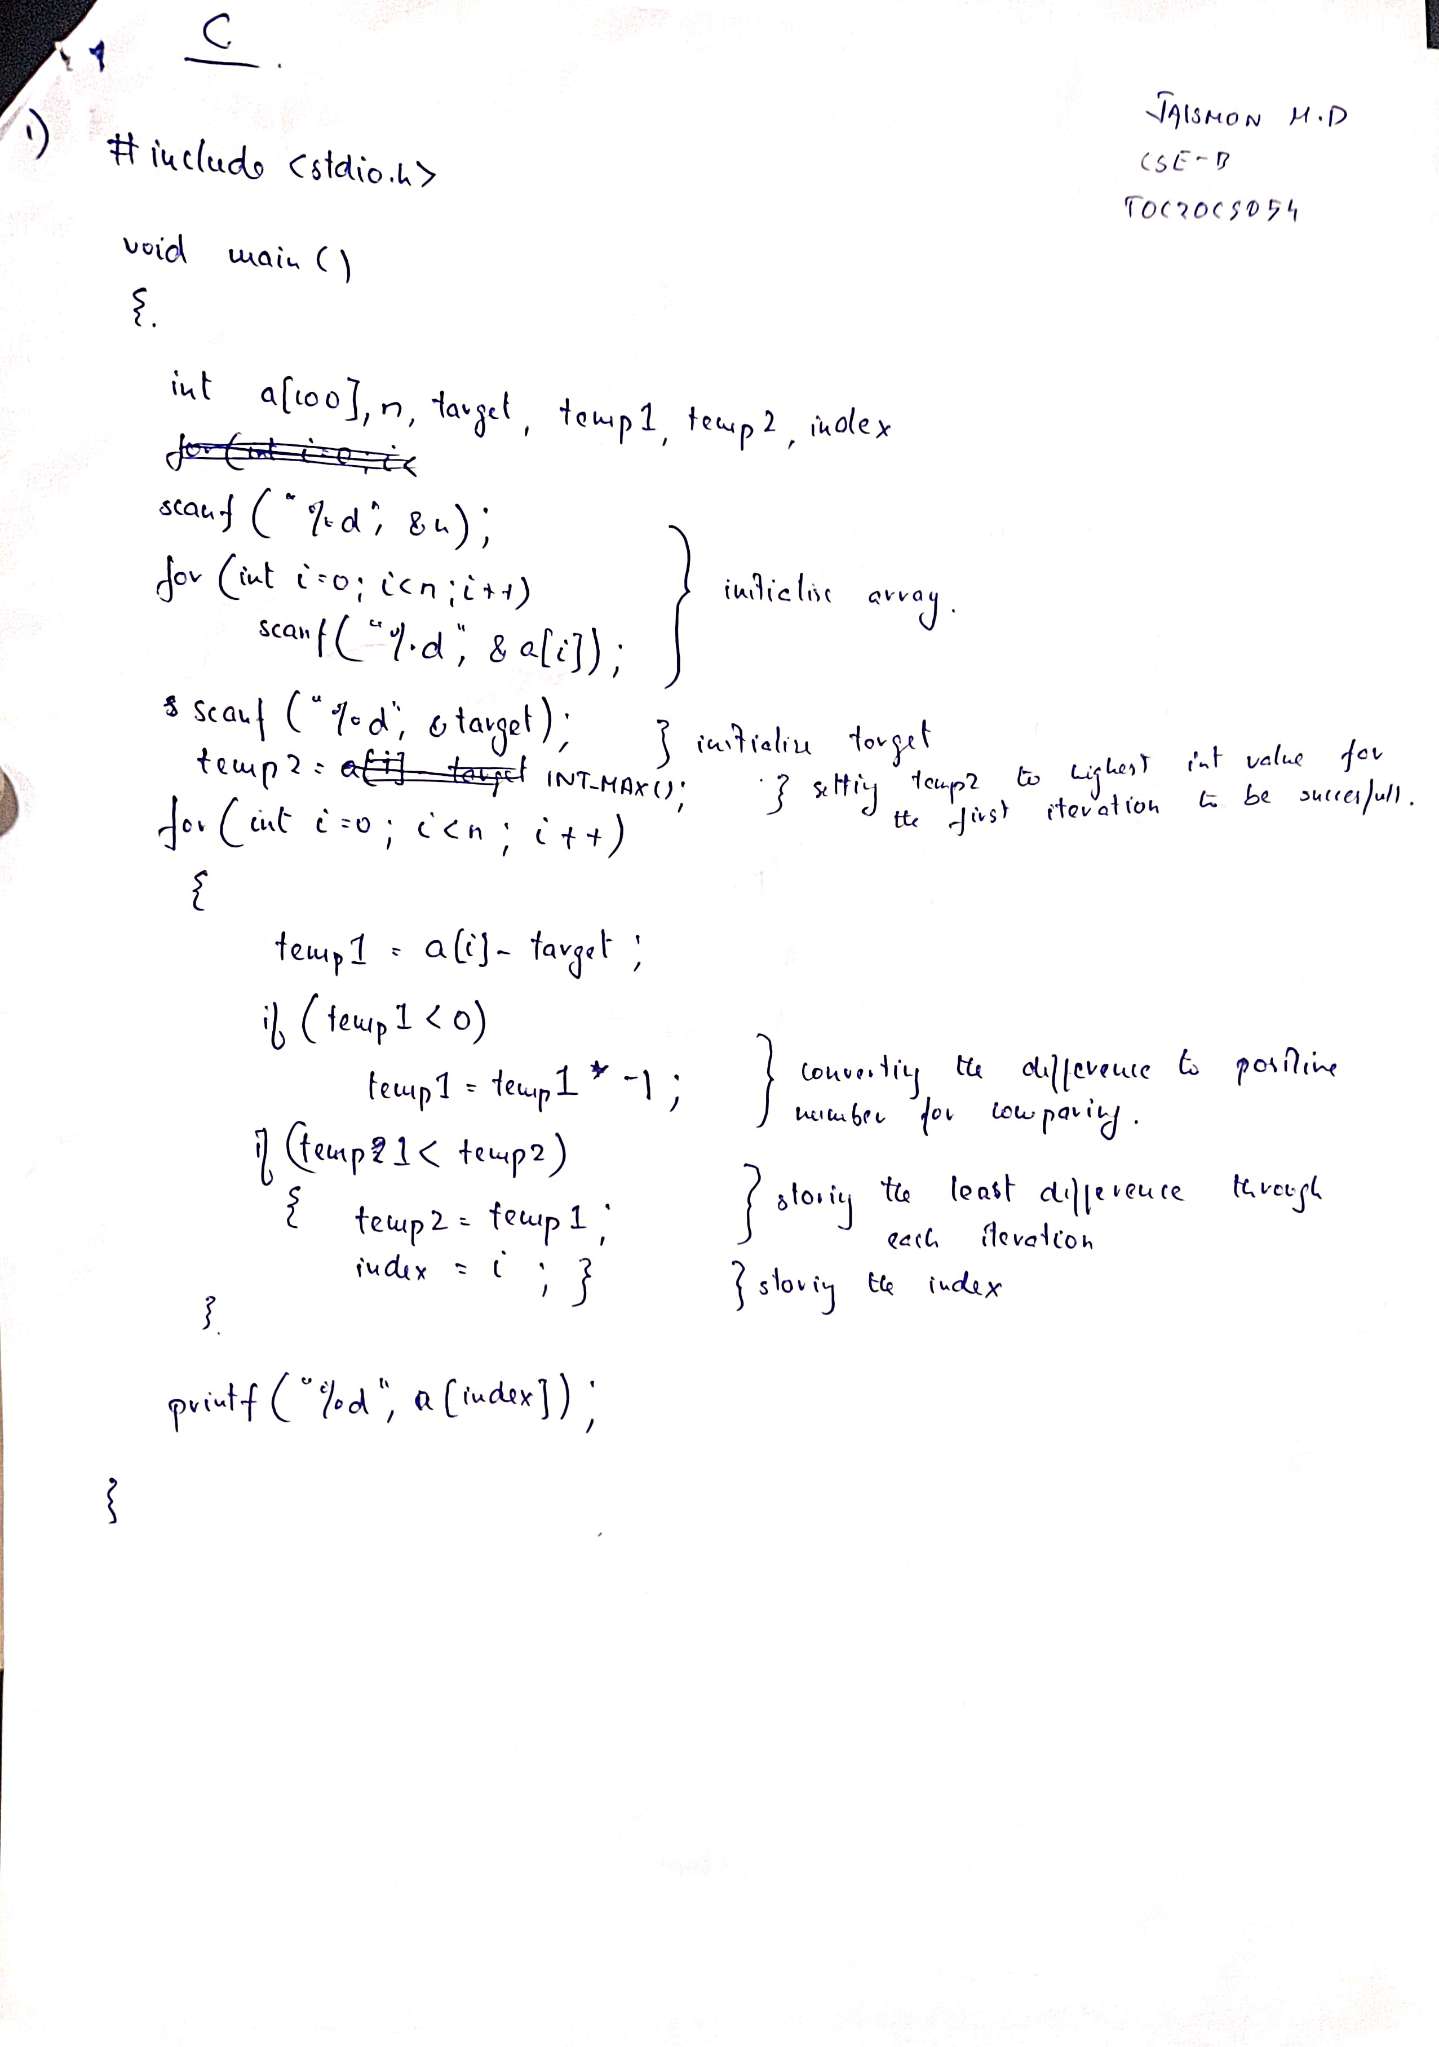 C
JAISMON M.D
CSE-B
TOC20CS054
1)
#include <stdio.h>
void main ()
{
int a[100], n, target, temp1, temp2, index
for (int i=0; i<
scanf ("%d", &n);
for (int i=0; i<n; i++)
scanf ("%d", &a[i]);
} initialise array.
scanf ("%d", &target);
} initialise target
temp2 = a[i] - target INT_MAX();
} setting temp2 to highest int value for
the first iteration to be succesfull.
for (int i=0; i<n; i++)
{
temp1 = a[i] - target;
if (temp1<0)
temp1 = temp1 * -1;
} converting the difference to positive
number for comparing.
if (temp1 < temp2)
{ temp2 = temp1;
} storing the least difference through
each iteration
index = i; }
} storing the index
}
printf ("%d", a[index]);
}